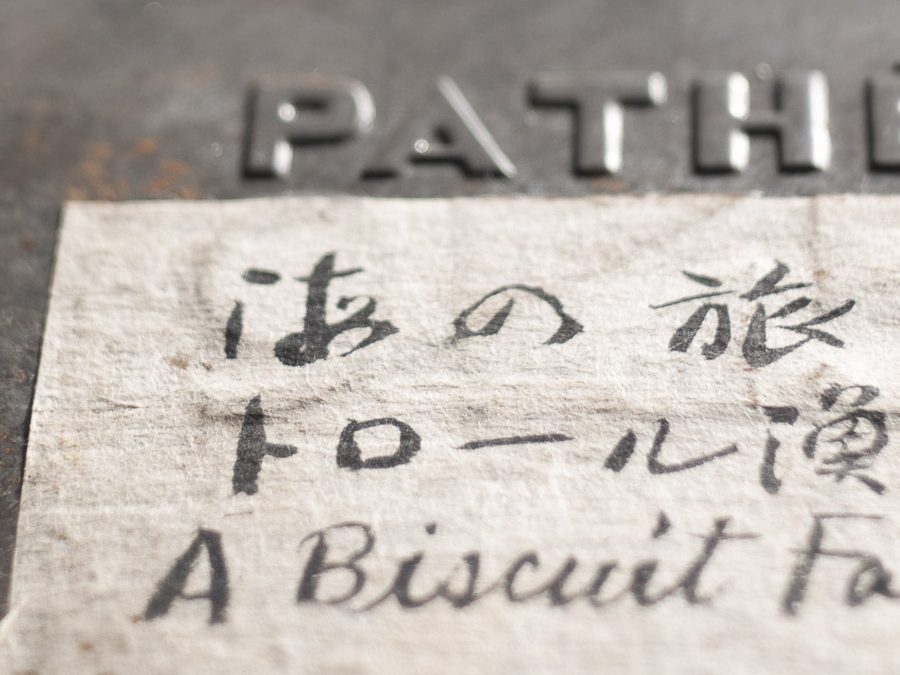 PATHÉ
海の旅
トロール漁
A Biscuit Fa